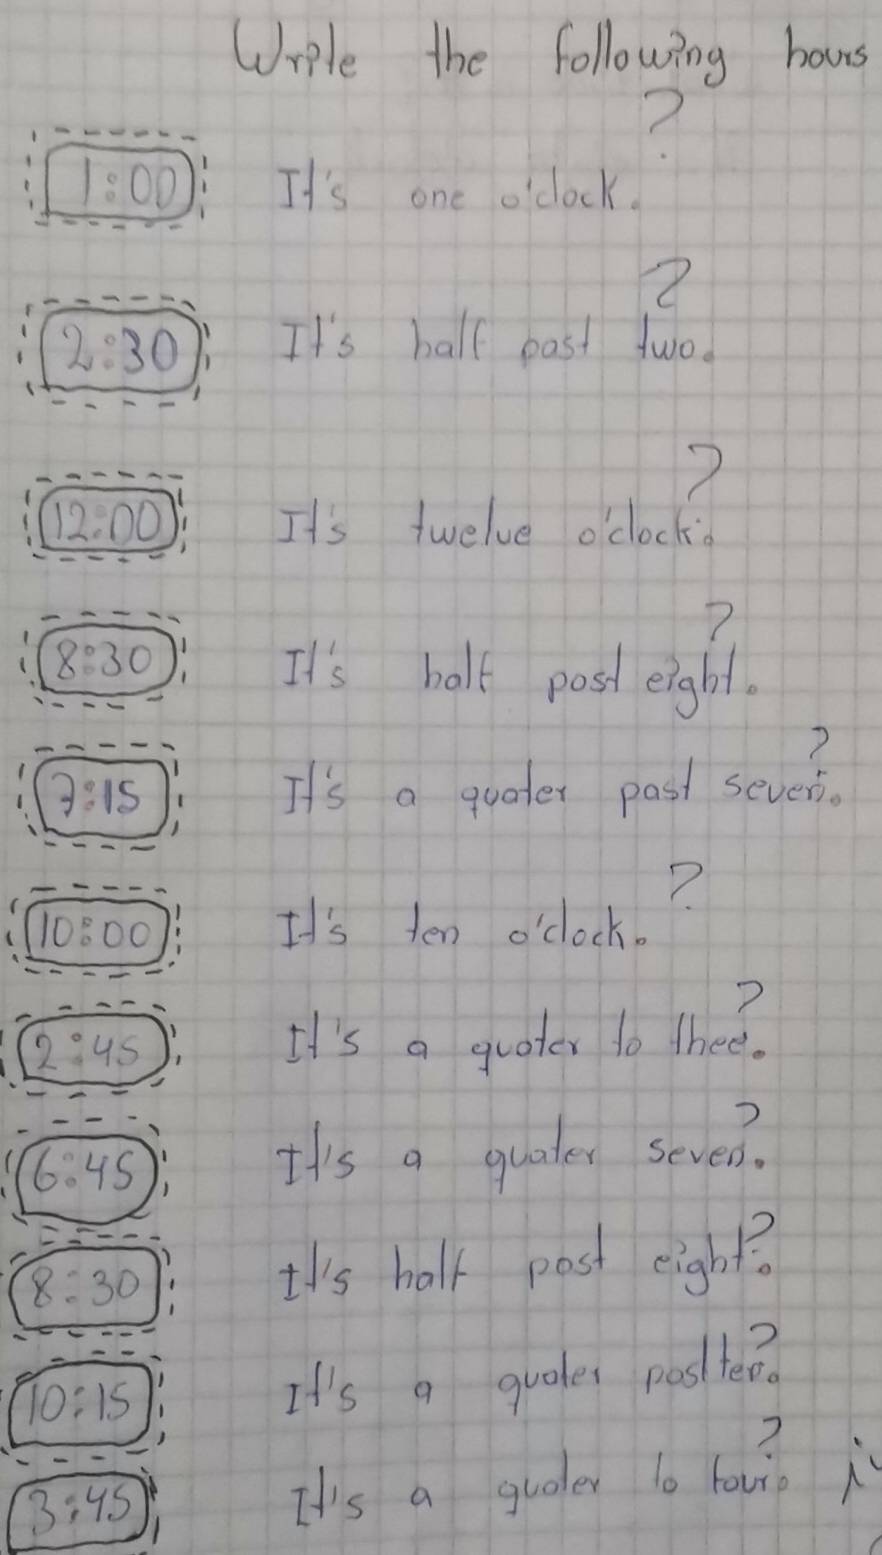 Write the following hours
?
1:00 It's one o'clock.
?
2:30 It's half past two.
?
12:00 It's twelve o'clock.
?
8:30 It's half past eight.
?
7:15 It's a quater past seven.
?
10:00 It's ten o'clock.
?
2:45 It's a quater to thee.
?
6:45 It's a quater seven.
?
8:30 It's half past eight.
?
10:15 It's a quater past ten.
?
3:45 It's a quater to four.